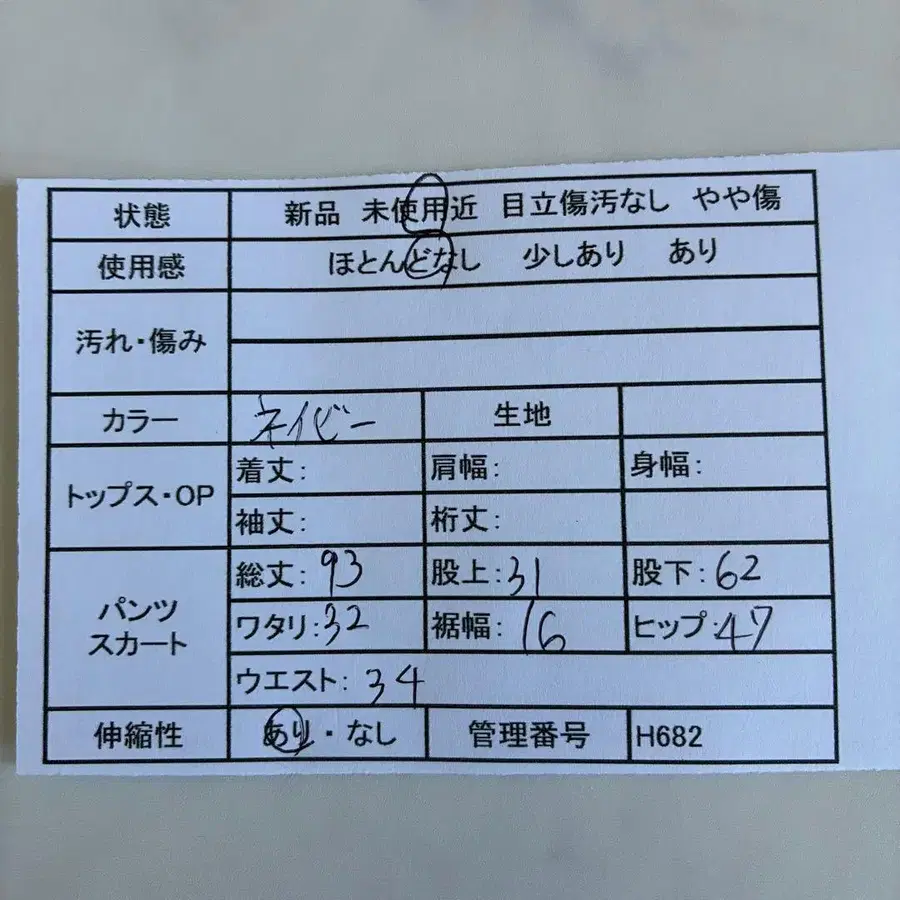 状態 新品 未使用近 目立傷汚なし やや傷
使用感 ほとんどなし 少しあり あり
汚れ・傷み
カラー ネイビー 生地
トップス・OP 着丈: 肩幅: 身幅:
袖丈: 裄丈:
パンツ スカート 総丈: 93 股上: 31 股下: 62
ワタリ: 32 裾幅: 16 ヒップ: 47
ウエスト: 34
伸縮性 あり・なし 管理番号 H682